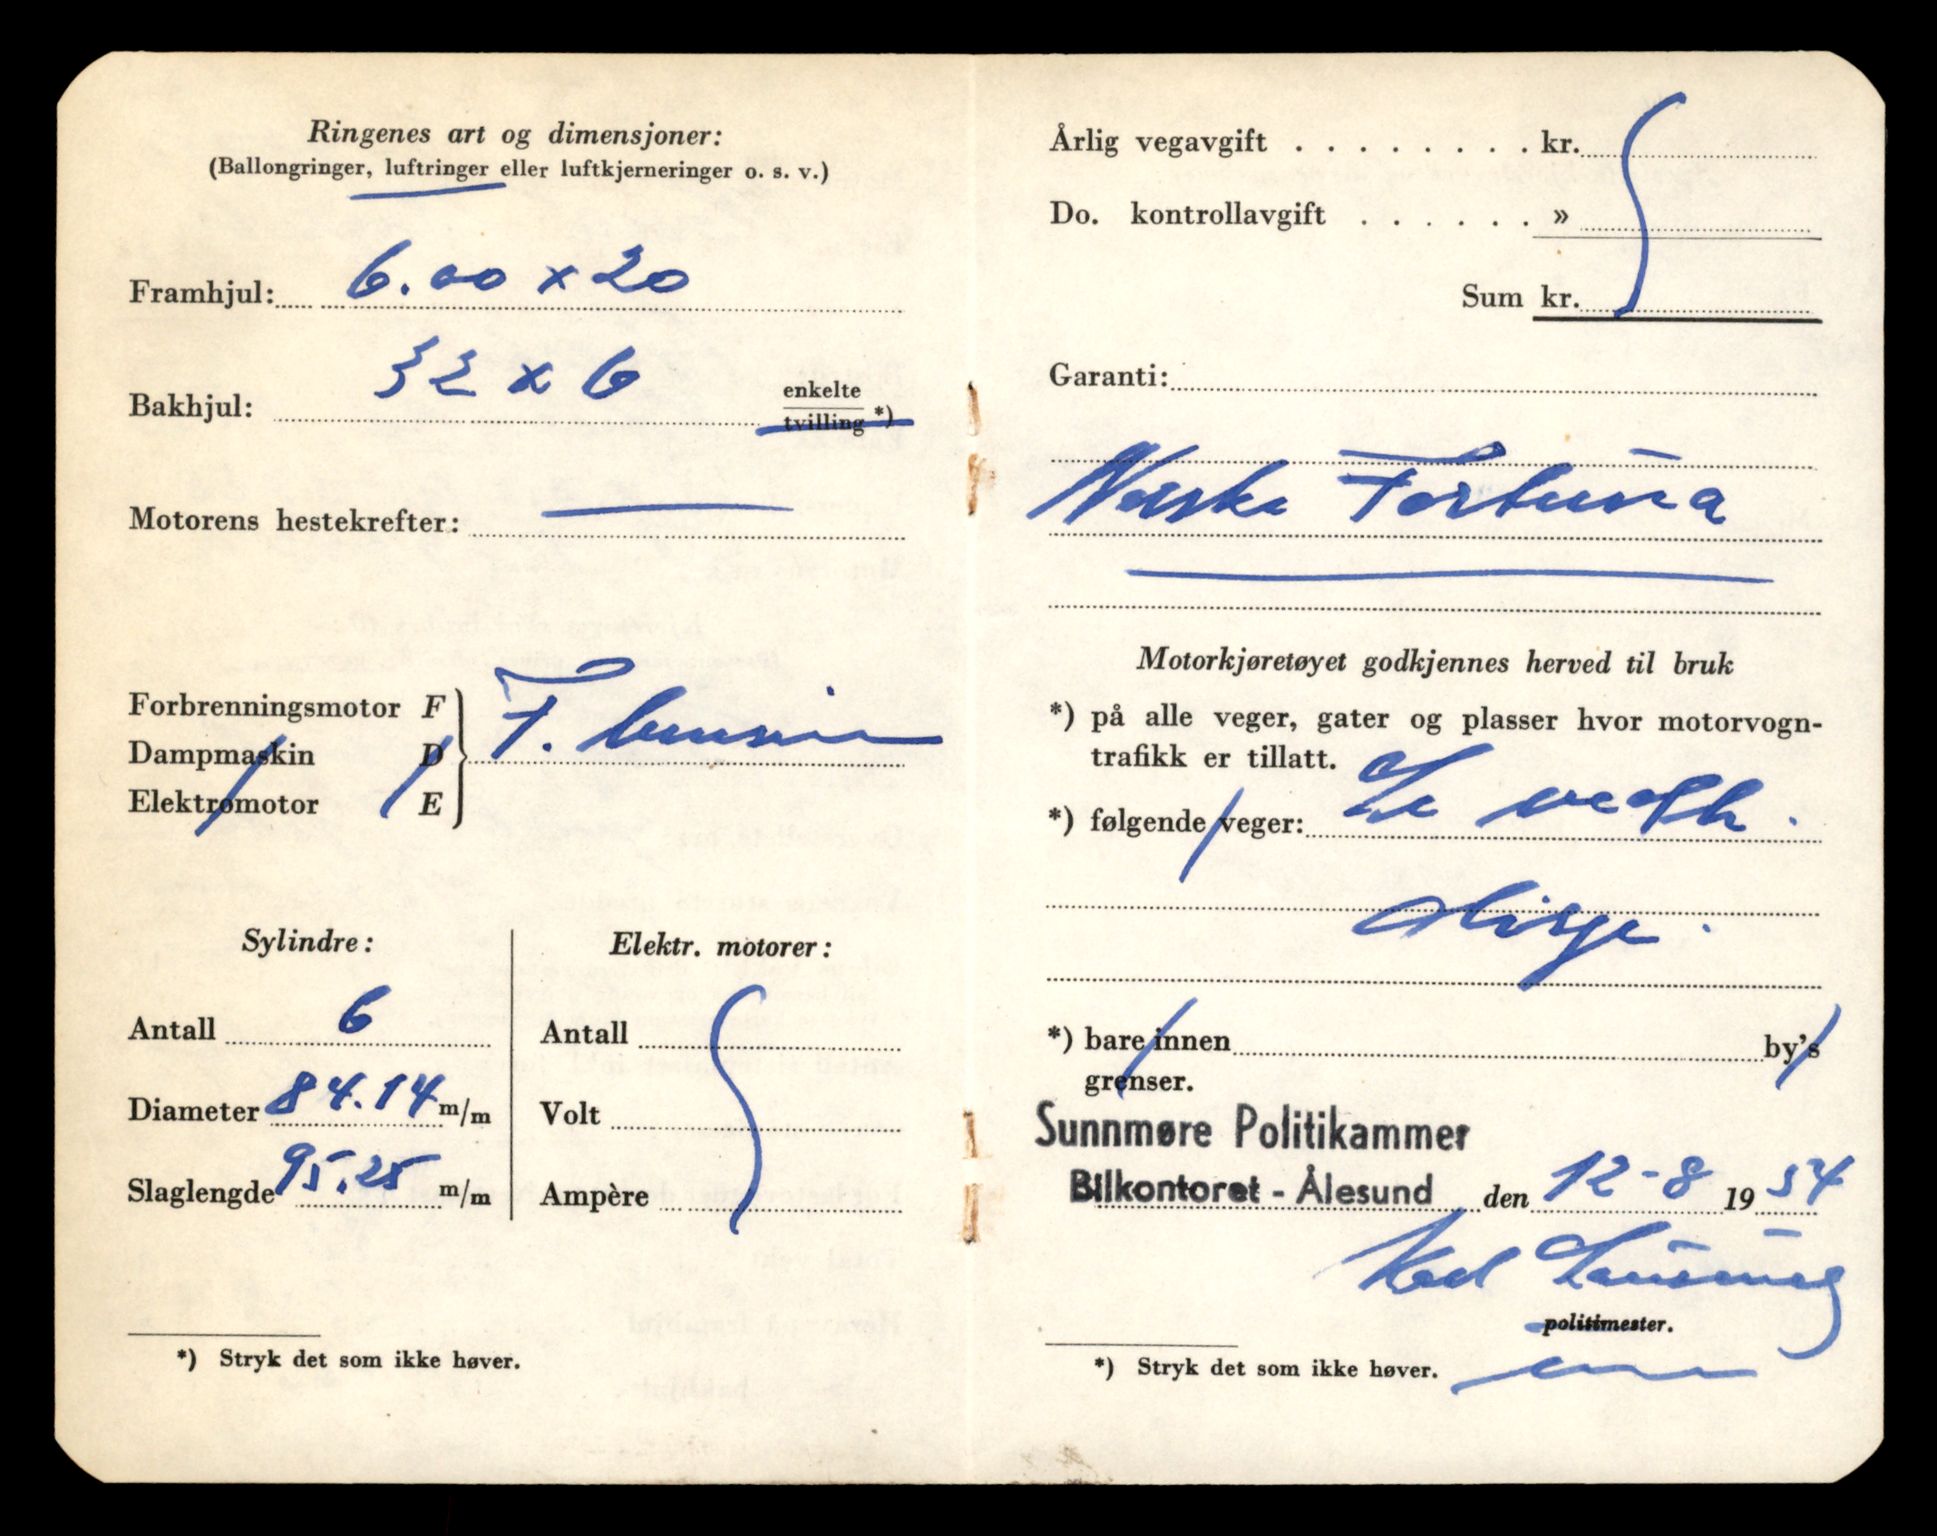 Ringenes art og dimensjoner:
(Ballongringer, luftringer eller luftkjerneringer o. s. v.)
Framhjul: 6.00 x 20
Bakhjul: 32 x 6 enkelte
tvilling *)
Motorens hestekrefter:
Forbrenningsmotor F
Dampmaskin D F. bensin
Elektromotor E
Sylindre:
Antall 6
Diameter 84.14 m/m
Slaglengde 95.25 m/m
Elektr. motorer:
Antall
Volt
Ampère
*) Stryk det som ikke høver.
Årlig vegavgift . . . . . . . . kr.
Do. kontrollavgift . . . . . . »
Sum kr.
Garanti:
Norske Fortuna
Motorkjøretøyet godkjennes herved til bruk
*) på alle veger, gater og plasser hvor motorvogn-
trafikk er tillatt.
*) følgende veger: Se vedh.
*) bare innen by's
grenser.
Sunnmøre Politikammer
Bilkontoret - Ålesund den 12-8 19 54
politimester.
*) Stryk det som ikke høver.